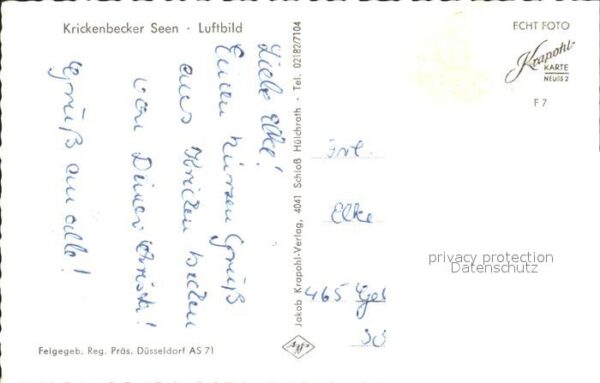 Krickenbecker Seen · Luftbild
Liebe Elke!
Einen kurzen Gruß
aus Kricken becken
von Deiner Christa!
Gruß an alle!
Feigegeb. Reg. Präs. Düsseldorf AS 71
Jakob Krapohl-Verlag, 4041 Schloß Hülchrath · Tel. 02182/7104
ECHT FOTO
Krapohl-
KARTE
NEUSS 2
F 7
Frl.
Elke
465 Gel
privacy protection
Datenschutz